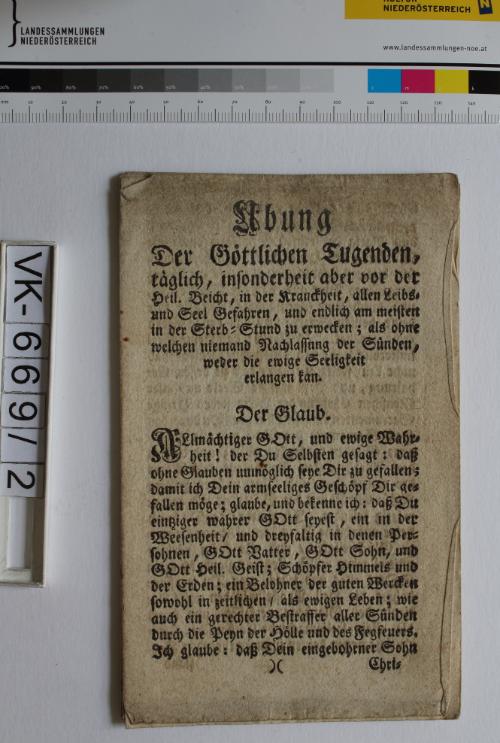 LANDESSAMMLUNGEN
NIEDERÖSTERREICH
NIEDERÖSTERREICH
www.landessammlungen-noe.at
VK-669/2
Ubung
Der Göttlichen Tugenden,
täglich, insonderheit aber vor der
Heil. Beicht, in der Kranckheit, allen Leibs-
und Seel Gefahren, und endlich am meisten
in der Sterb-Stund zu erwecken; als ohne
welchen niemand Nachlassung der Sünden,
weder die ewige Seeligkeit
erlangen kan.
Der Glaub.
Allmächtiger GOtt, und ewige Wahr-
heit! der Du Selbsten gesagt: daß
ohne Glauben unmöglich seye Dir zu gefallen;
damit ich Dein armseeliges Geschöpf Dir ge-
fallen möge; glaube, und bekenne ich: daß Du
eintziger wahrer GOtt seyest, ein in der
Weesenheit/ und dreyfaltig in denen Per-
sohnen, GOtt Vatter, GOtt Sohn, und
GOtt Heil. Geist; Schöpfer Himmels und
der Erden; ein Belohner der guten Wercken
sowohl in zeitlichen/ als ewigen Leben; wie
auch ein gerechter Bestraffer aller Sünden
durch die Peyn der Hölle und des Fegfeuers.
Ich glaube: daß Dein eingebohrner Sohn
)( Chri-